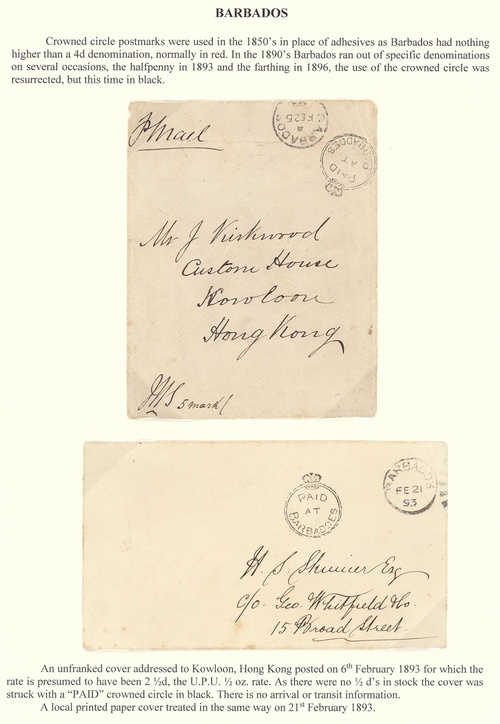 BARBADOS
Crowned circle postmarks were used in the 1850's in place of adhesives as Barbados had nothing
higher than a 4d denomination, normally in red. In the 1890's Barbados ran out of specific denominations
on several occasions, the halfpenny in 1893 and the farthing in 1896, the use of the crowned circle was
resurrected, but this time in black.
P Mail
BARBADOS
A
FE 25
PAID
AT
BARBADOES
Mr J Kirkwood
Custom House
Kowloon
Hong Kong
5 mark
PAID
AT
BARBADOES
BARBADOS
FE 21
93
H. S. Skinner Esq
c/o. Geo. Whitfield & Co.
15 Broad Street.
An unfranked cover addressed to Kowloon, Hong Kong posted on 6th February 1893 for which the
rate is presumed to have been 2 ½d, the U.P.U. ½ oz. rate. As there were no ½ d's in stock the cover was
struck with a “PAID” crowned circle in black. There is no arrival or transit information.
A local printed paper cover treated in the same way on 21st February 1893.